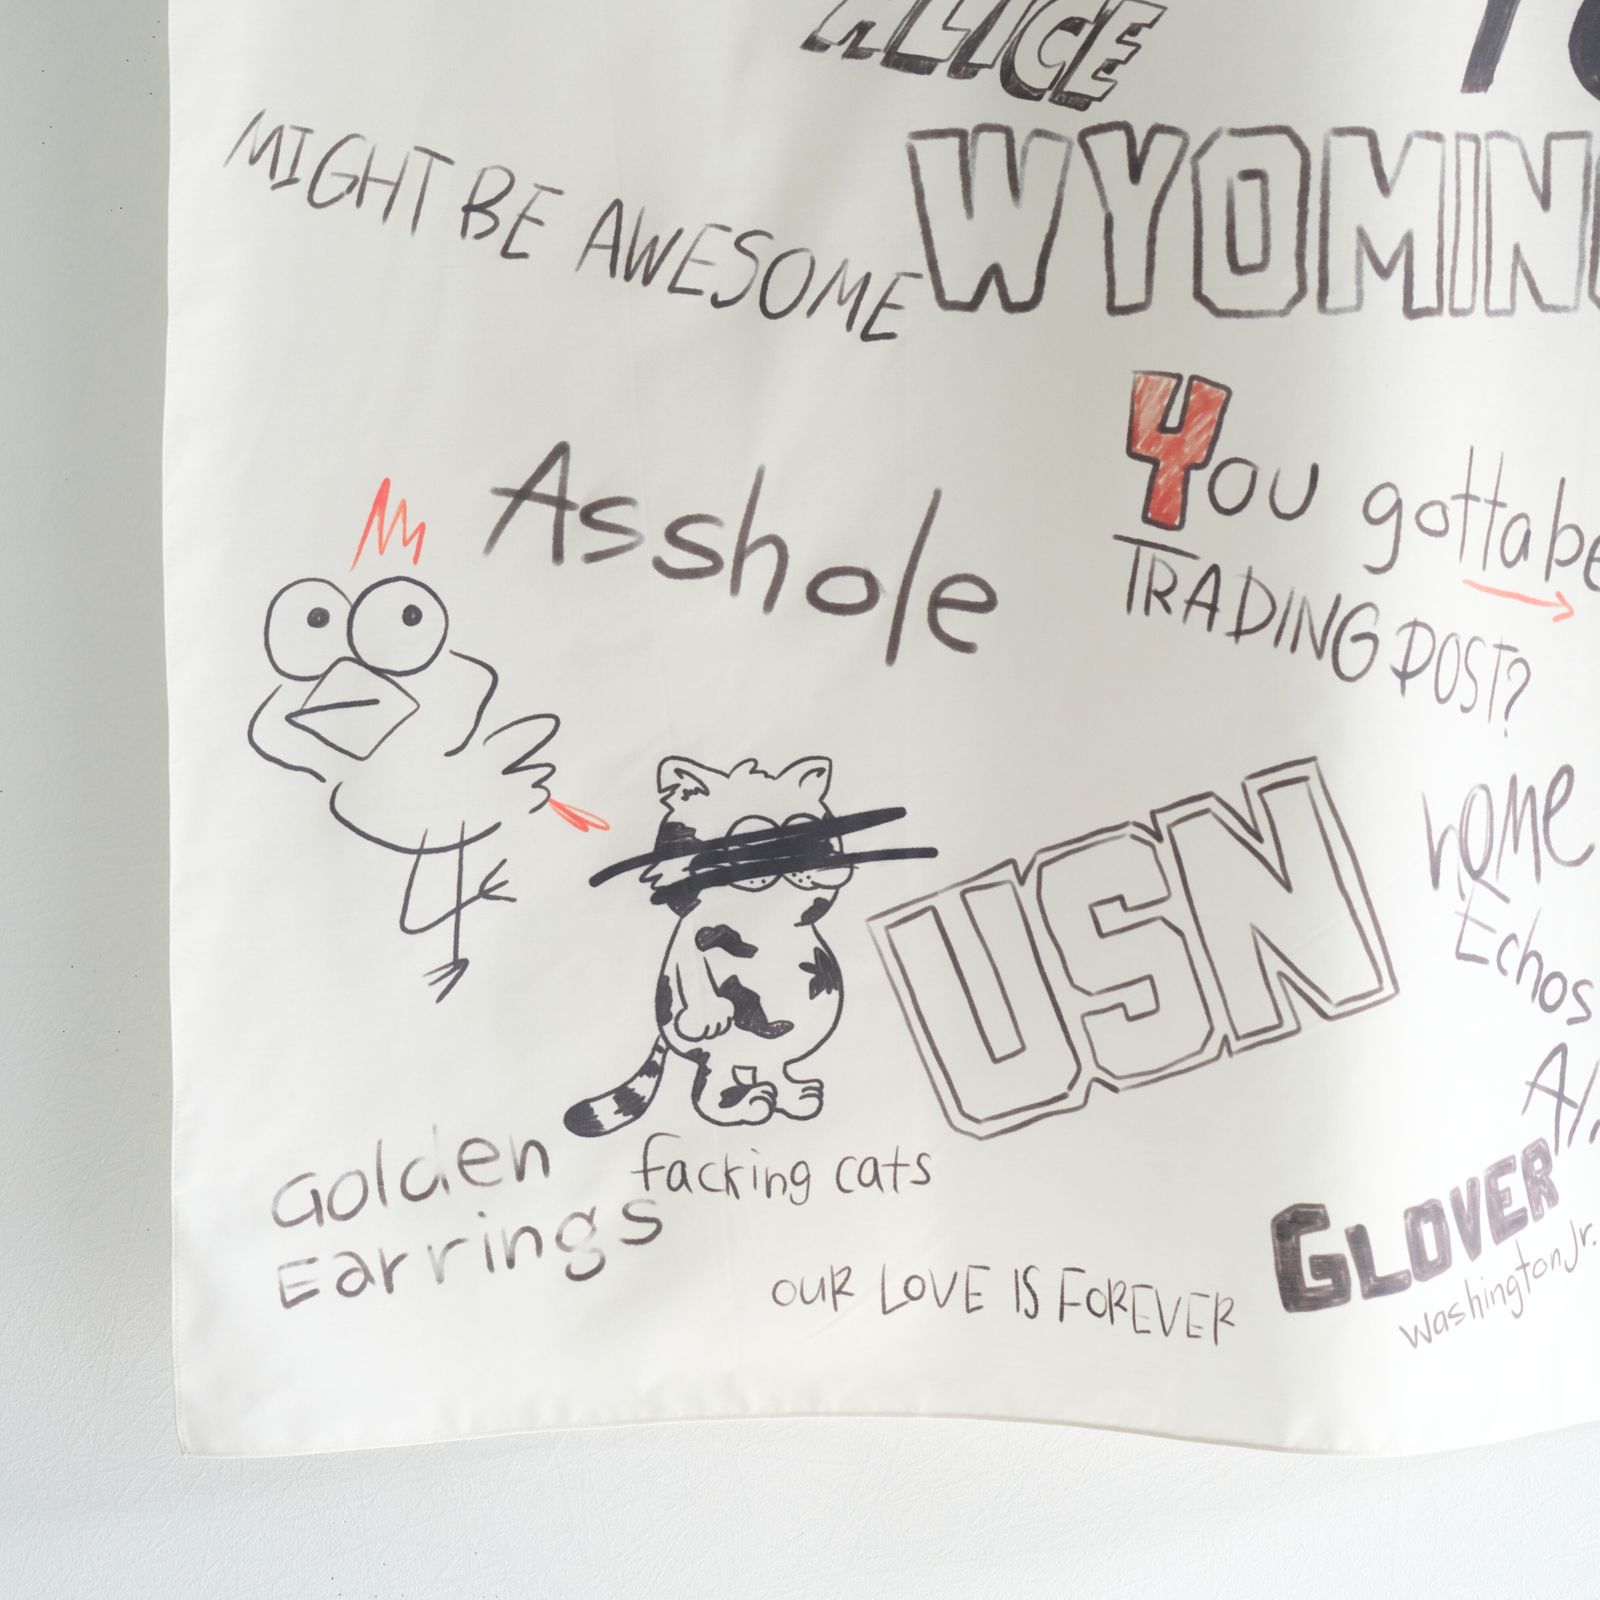 ALICE
MIGHT BE AWESOME
WYOMIN
You gotta be
TRADING POST?
Asshole
USN
home
Echos
Golden
Earrings
facking cats
OUR LOVE IS FOREVER
GLOVER
Washington Jr.